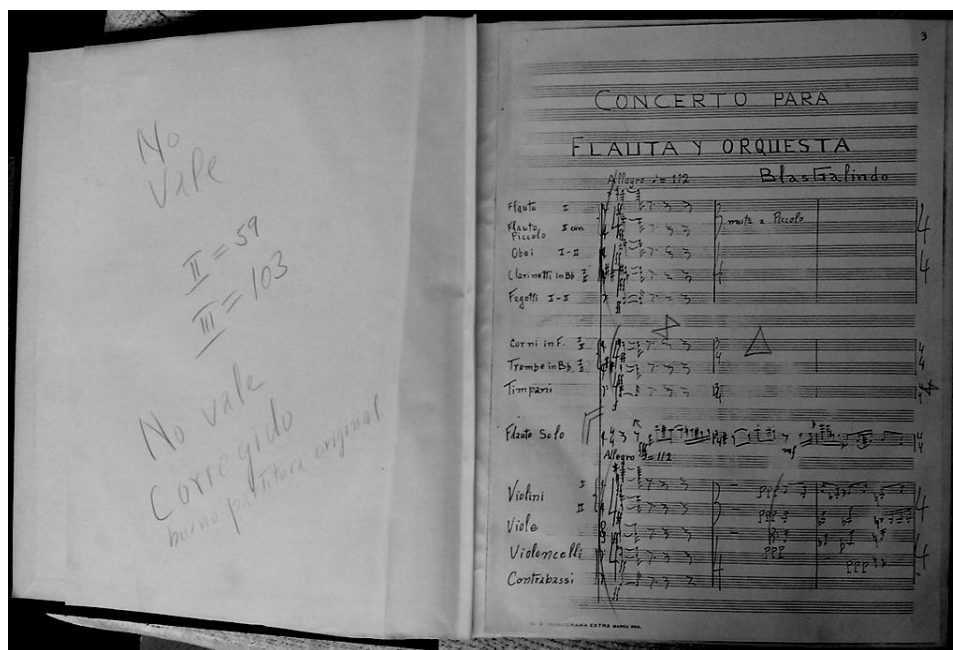 No
Vale
II = 59
III = 103
No vale
Corregido
bueno partitura original
3
CONCERTO PARA
FLAUTA Y ORQUESTA
Allegro ♩= 112
Blas Galindo
Flauto I
Flauto II con
Piccolo
muta a Piccolo
Oboi I-II
Clarinetti in Bb I II
Fagotti I-II
Corni in F. I II
Trombe in Bb I II
Timpani
Flauto Solo
mf
Allegro ♩= 112
Violini I
II
ppp
Viole
ppp
Violoncelli
ppp
ppp
Contrabassi
EXTRA MARCA